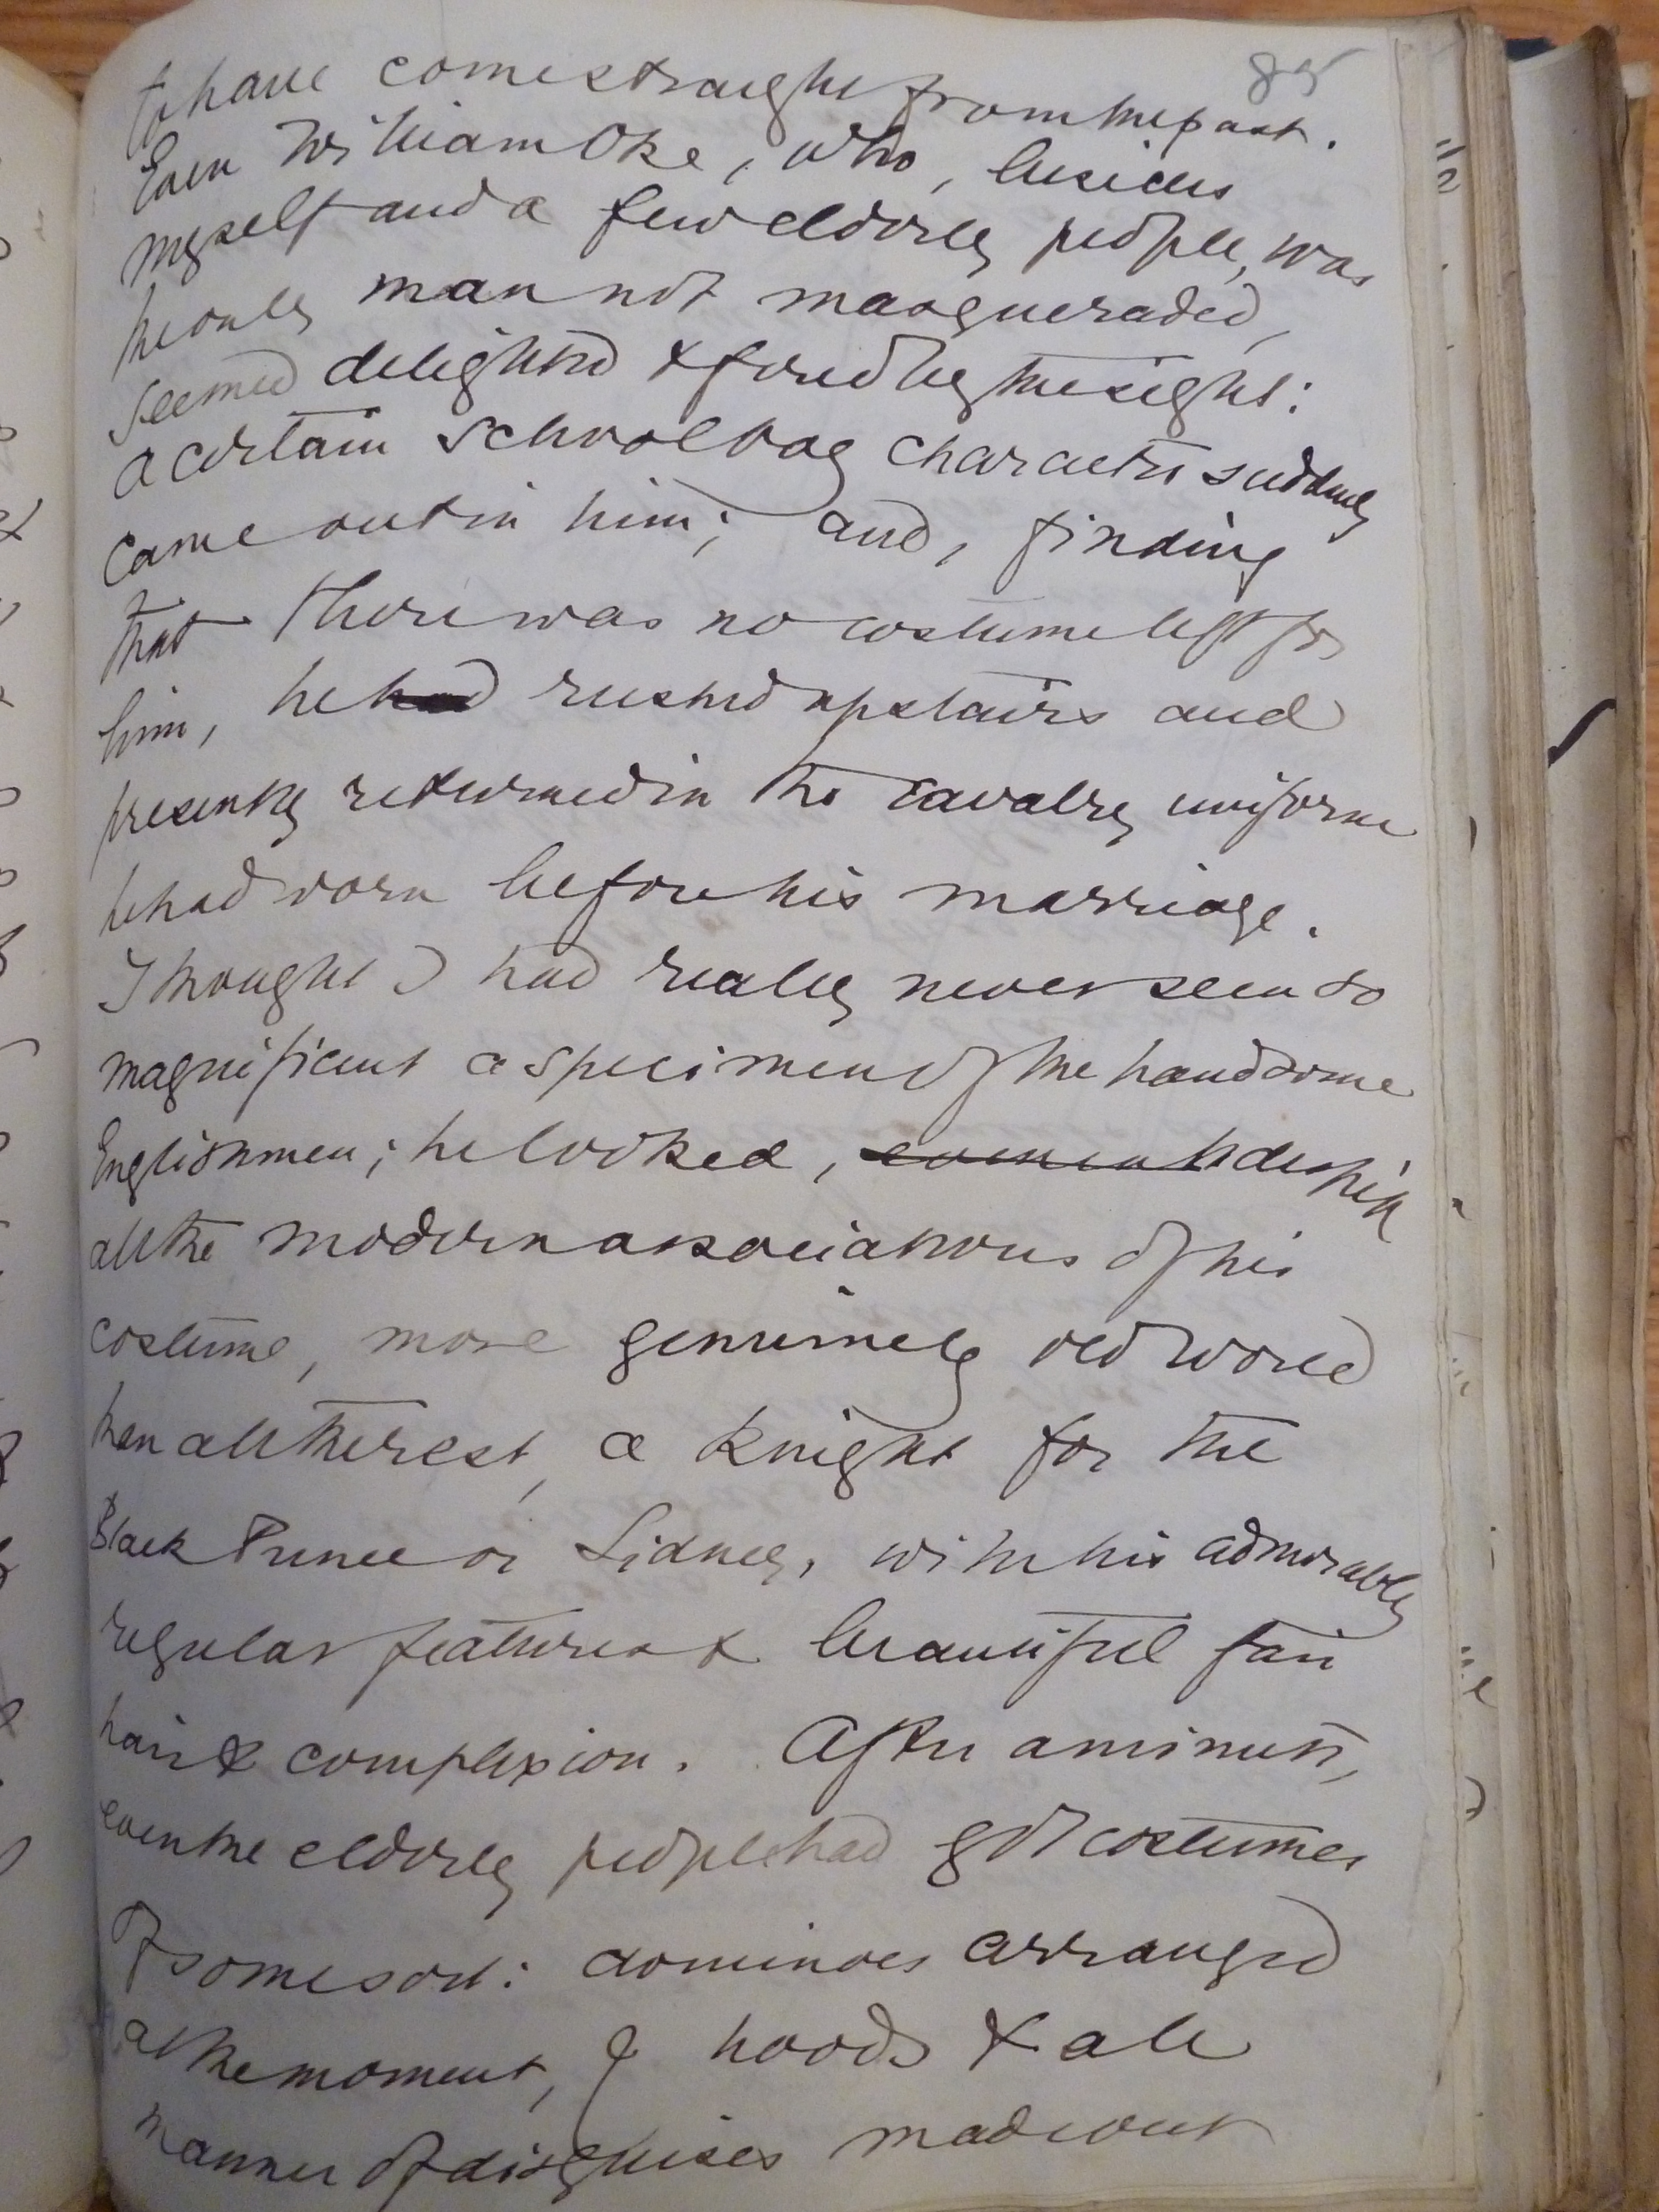 85
to have come straight from the past.
Even William Oke, who, besides
myself and a few elderly people, was
the only man not masqueraded,
seemed delighted & fired by the sight:
a certain schoolboy character suddenly
came out in him; and, finding
that there was no costume left for
him, he had rushed upstairs and
presently returned in the cavalry uniform
he had worn before his marriage.
I thought I had really never seen so
magnificent a specimen of the handsome
Englishmen; he looked, despite
all the modern associations of his
costume, more genuinely old world
than all the rest, a knight for the
Black Prince or Sidney, with his admirably
regular features & beautiful fair
hair & complexion. After a minute,
even the elderly people had got costumes
of some sort: dominoes arranged
at the moment, & hoods & all
manner of disguises made out